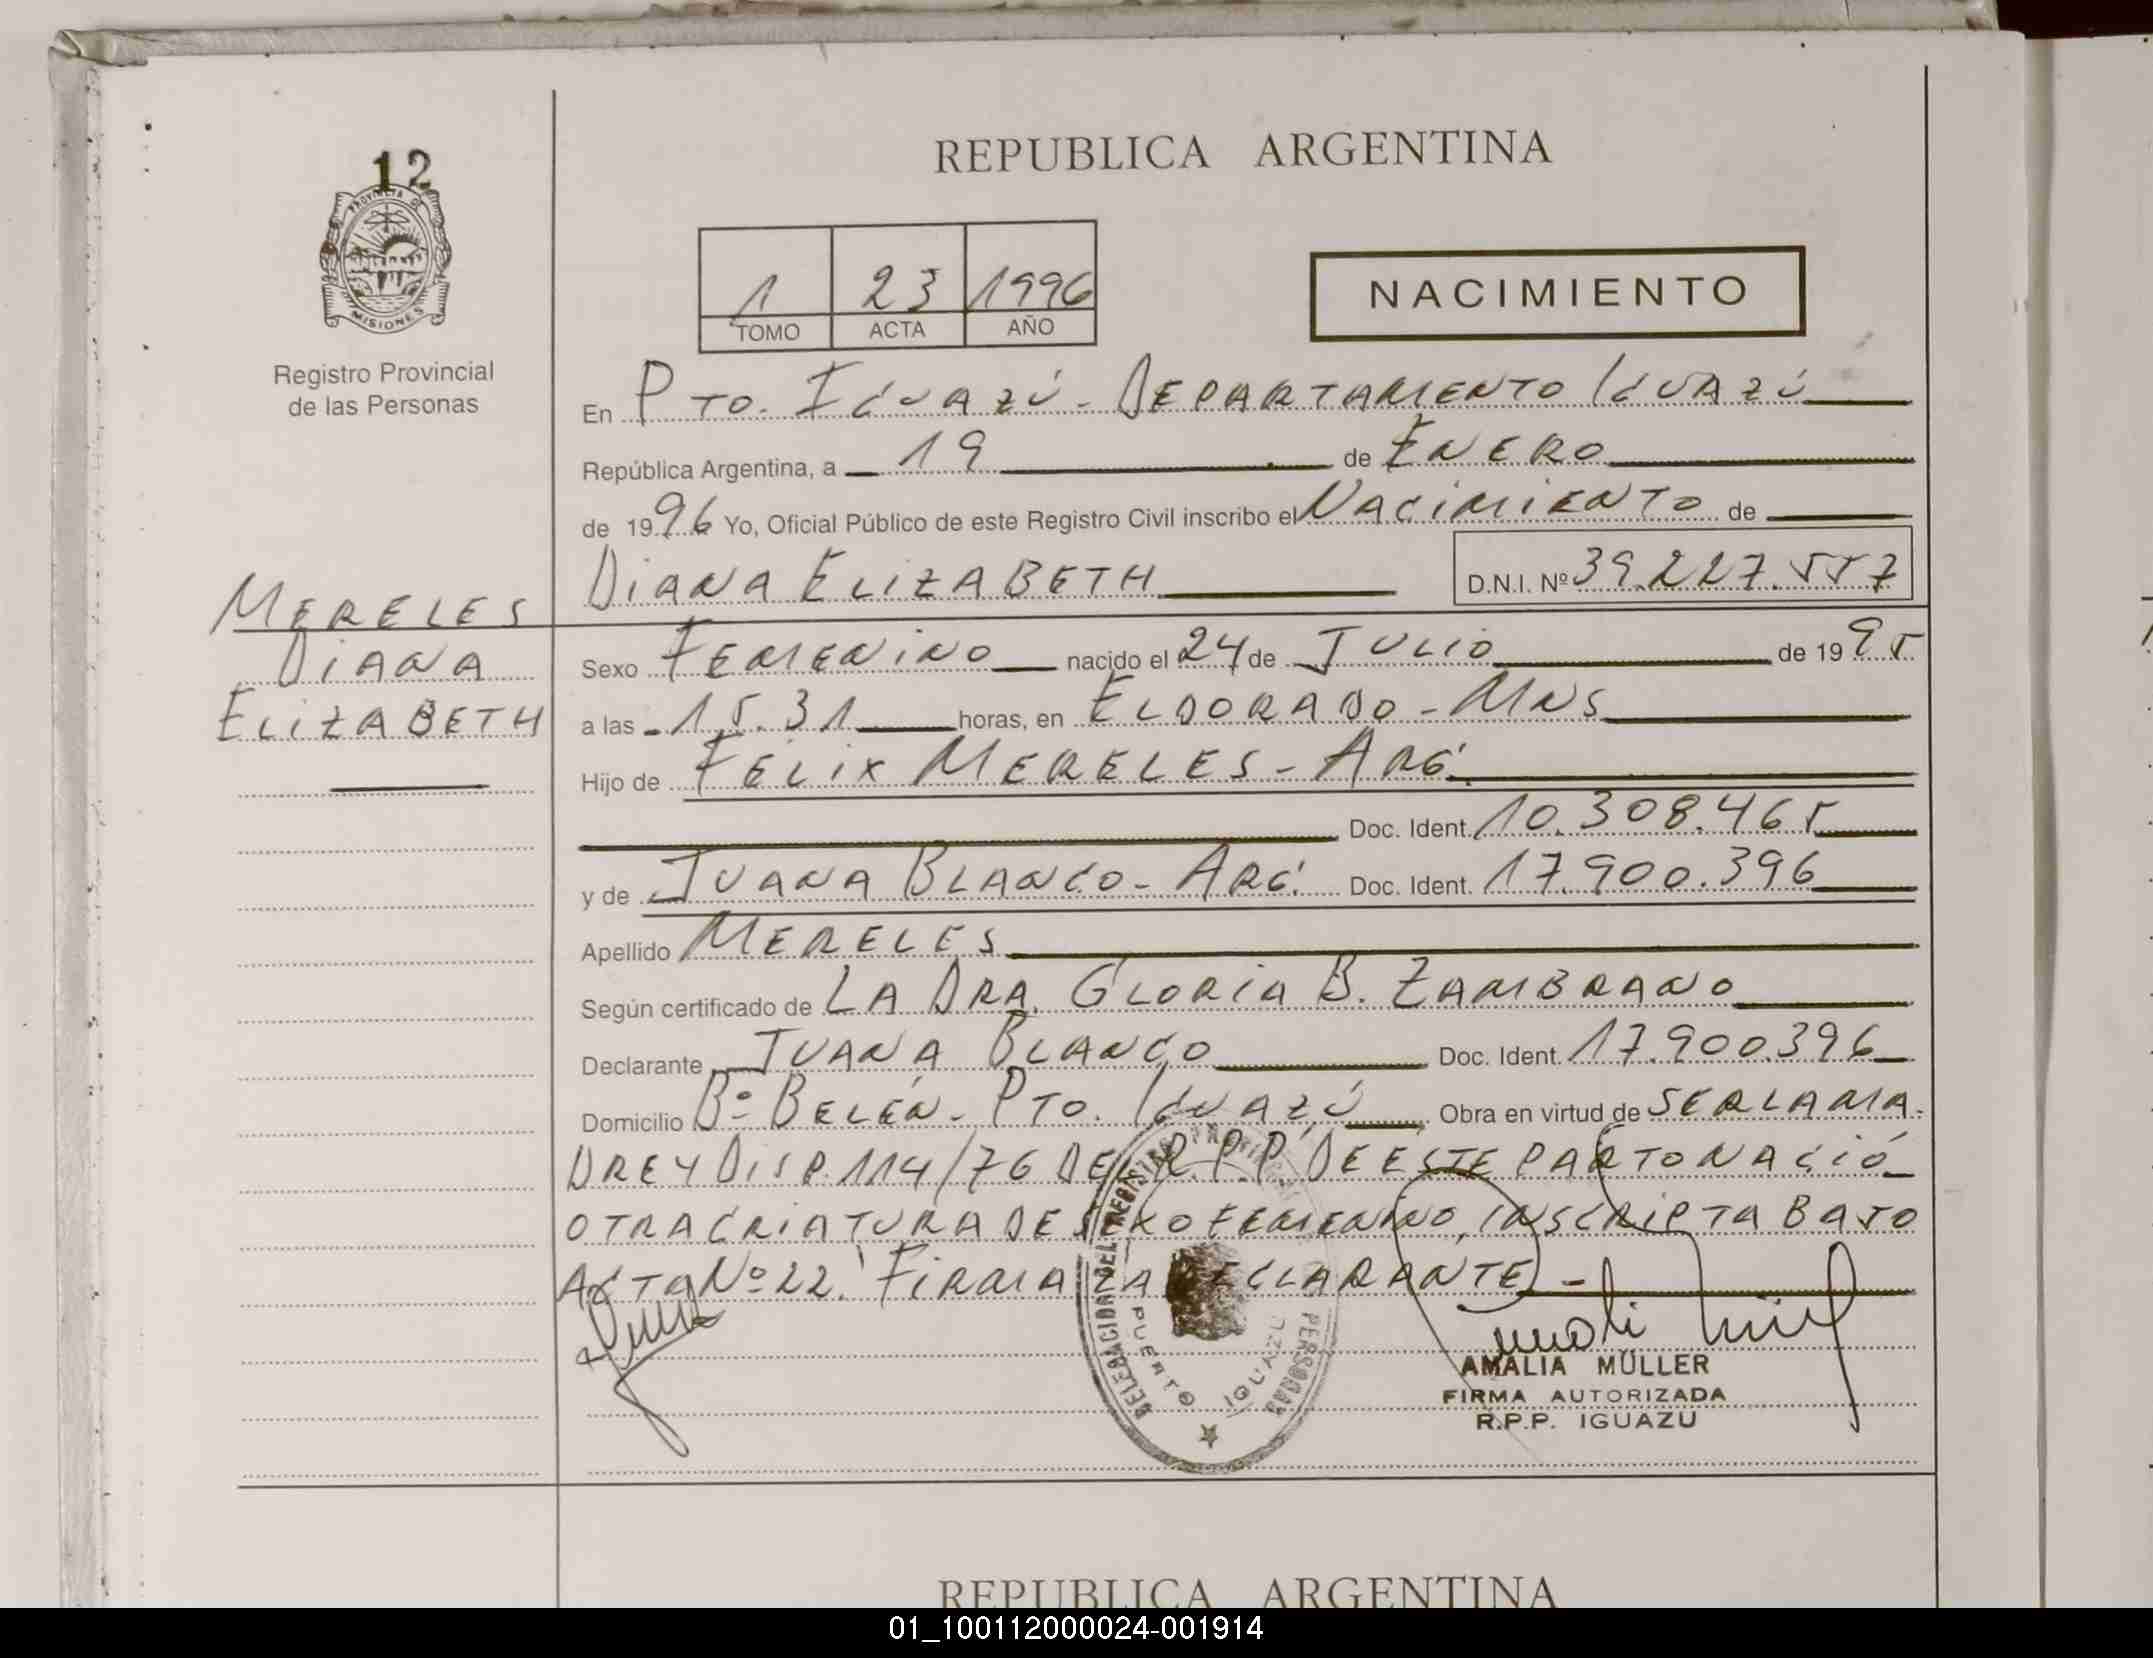 12
PROVINCIA DE
MISIONES
Registro Provincial
de las Personas
MERELES
DIANA
ELIZABETH
REPUBLICA ARGENTINA
1 23 1996
TOMO ACTA AÑO
NACIMIENTO
En PTO. IGUAZÚ - DEPARTAMENTO IGUAZÚ
República Argentina, a 19 de ENERO
de 1996 Yo, Oficial Público de este Registro Civil inscribo el NACIMIENTO de
DIANA ELIZABETH D.N.I. Nº 39.227.557
Sexo FEMENINO nacido el 24 de JULIO de 1995
a las 15.31 horas, en ELDORADO - MNS
Hijo de FÉLIX MERELES - ARG.
Doc. Ident. 10.308.465
y de JUANA BLANCO - ARG. Doc. Ident. 17.900.396
Apellido MERELES
Según certificado de LA DRA. GLORIA B. ZAMBRANO
Declarante JUANA BLANCO Doc. Ident. 17.900.396
Domicilio Bº BELÉN - PTO. IGUAZÚ Obra en virtud de SER LA MA-
DRE Y DISP. 114/76 DEL R.P.P. DE ESTE PARTO NACIÓ
OTRA CRIATURA DE SEXO FEMENINO, INSCRIPTA BAJO
ACTA Nº 22. FIRMA LA DECLARANTE -
DELEGACION DEL REGISTRO PROVINCIAL PERSONAS
PUERTO IGUAZU
AMALIA MÜLLER
FIRMA AUTORIZADA
R.P.P. IGUAZU
REPUBLICA ARGENTINA
01_100112000024-001914